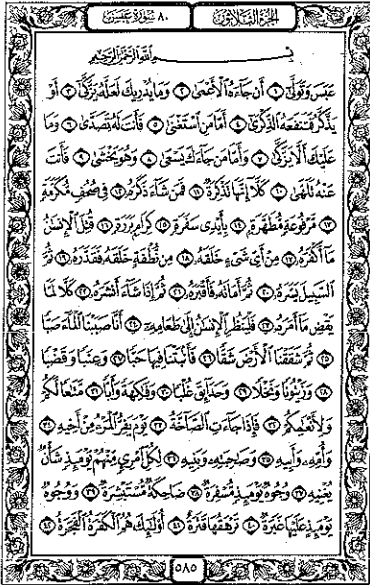 الجزء الثلاثون
٨٠ سورة عبس
بِسْمِ اللَّهِ الرَّحْمَٰنِ الرَّحِيمِ
عَبَسَ وَتَوَلَّىٰٓ ١ أَن جَآءَهُ ٱلْأَعْمَىٰ ٢ وَمَا يُدْرِيكَ لَعَلَّهُۥ يَزَّكَّىٰٓ ٣ أَوْ
يَذَّكَّرُ فَتَنفَعَهُ ٱلذِّكْرَىٰٓ ٤ أَمَّا مَنِ ٱسْتَغْنَىٰ ٥ فَأَنتَ لَهُۥ تَصَدَّىٰ ٦ وَمَا
عَلَيْكَ أَلَّا يَزَّكَّىٰ ٧ وَأَمَّا مَن جَآءَكَ يَسْعَىٰ ٨ وَهُوَ يَخْشَىٰ ٩ فَأَنتَ
عَنْهُ تَلَهَّىٰ ١٠ كَلَّآ إِنَّهَا تَذْكِرَةٌ ١١ فَمَن شَآءَ ذَكَرَهُۥ ١٢ فِى صُحُفٍ مُّكَرَّمَةٍ
١٣ مَّرْفُوعَةٍ مُّطَهَّرَةٍۭ ١٤ بِأَيْدِى سَفَرَةٍ ١٥ كِرَامٍۭ بَرَرَةٍ ١٦ قُتِلَ ٱلْإِنسَٰنُ
مَآ أَكْفَرَهُۥ ١٧ مِنْ أَىِّ شَىْءٍ خَلَقَهُۥ ١٨ مِن نُّطْفَةٍ خَلَقَهُۥ فَقَدَّرَهُۥ ١٩ ثُمَّ
ٱلسَّبِيلَ يَسَّرَهُۥ ٢٠ ثُمَّ أَمَاتَهُۥ فَأَقْبَرَهُۥ ٢١ ثُمَّ إِذَا شَآءَ أَنشَرَهُۥ ٢٢ كَلَّا لَمَّا
يَقْضِ مَآ أَمَرَهُۥ ٢٣ فَلْيَنظُرِ ٱلْإِنسَٰنُ إِلَىٰ طَعَامِهِۦٓ ٢٤ أَنَّا صَبَبْنَا ٱلْمَآءَ صَبًّا
٢٥ ثُمَّ شَقَقْنَا ٱلْأَرْضَ شَقًّا ٢٦ فَأَنۢبَتْنَا فِيهَا حَبًّا ٢٧ وَعِنَبًا وَقَضْبًا
٢٨ وَزَيْتُونًا وَنَخْلًا ٢٩ وَحَدَآئِقَ غُلْبًا ٣٠ وَفَٰكِهَةً وَأَبًّا ٣١ مَّتَٰعًا لَّكُمْ
وَلِأَنْعَٰمِكُمْ ٣٢ فَإِذَا جَآءَتِ ٱلصَّآخَّةُ ٣٣ يَوْمَ يَفِرُّ ٱلْمَرْءُ مِنْ أَخِيهِ ٣٤
وَأُمِّهِۦ وَأَبِيهِ ٣٥ وَصَٰحِبَتِهِۦ وَبَنِيهِ ٣٦ لِكُلِّ ٱمْرِئٍ مِّنْهُمْ يَوْمَئِذٍ شَأْنٌ
يُغْنِيهِ ٣٧ وُجُوهٌ يَوْمَئِذٍ مُّسْفِرَةٌ ٣٨ ضَاحِكَةٌ مُّسْتَبْشِرَةٌ ٣٩ وَوُجُوهٌ
يَوْمَئِذٍ عَلَيْهَا غَبَرَةٌ ٤٠ تَرْهَقُهَا قَتَرَةٌ ٤١ أُو۟لَٰٓئِكَ هُمُ ٱلْكَفَرَةُ ٱلْفَجَرَةُ ٤٢
٥٨٥